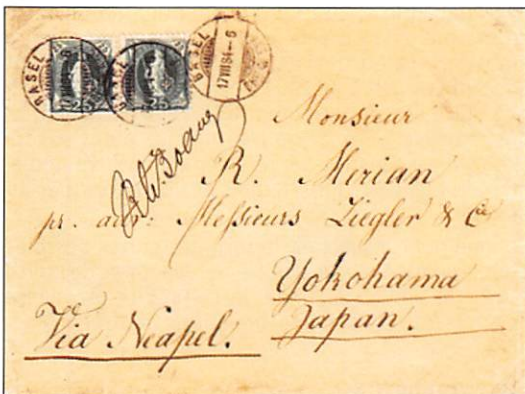 BASEL
BASEL
BASEL
25
25
17 VIII 84-6
Monsieur
R. Merian
pr. adr: Messieurs Ziegler & Cie
Yokohama
Japan.
Via Neapel.